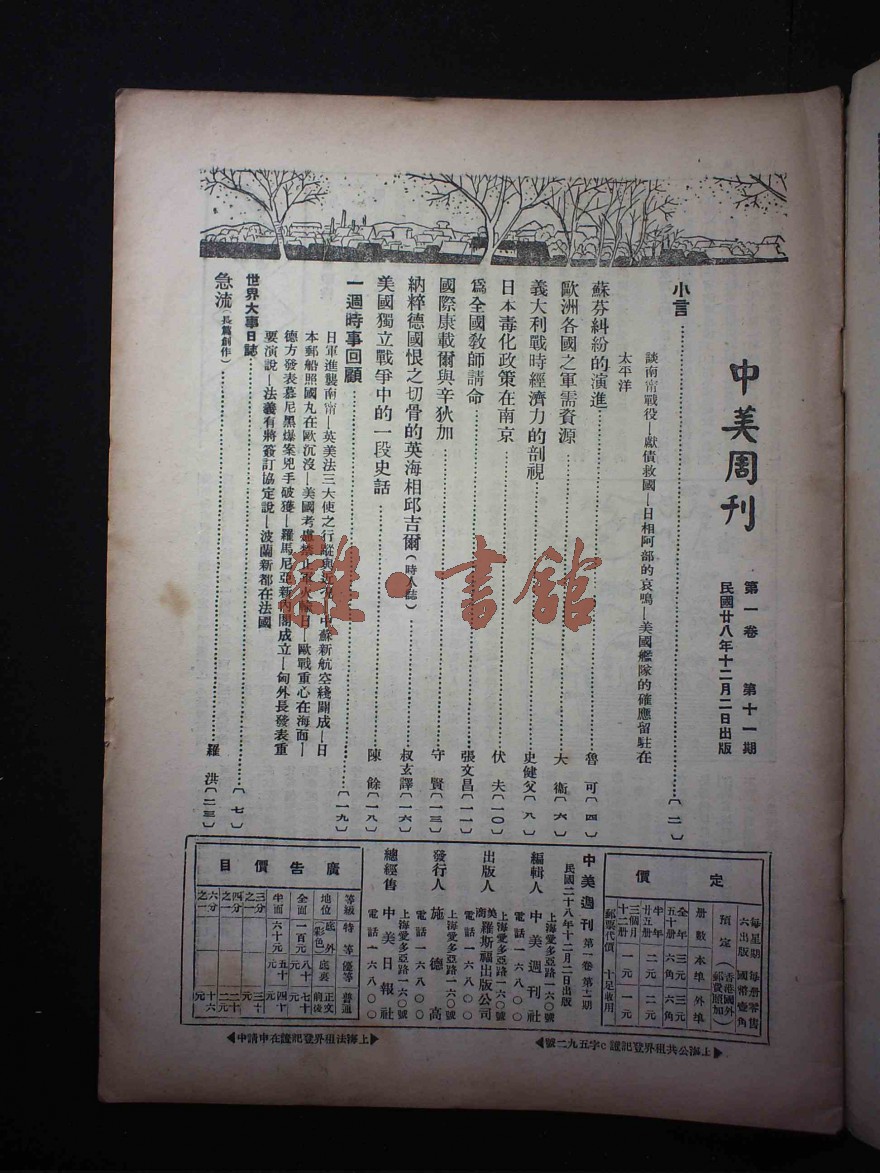 中美周刊
第一卷 第十一期
民國廿八年十二月二日出版
小言……〔二〕
談南甯戰役—獻債救國—日相阿部的哀鳴—美國艦隊的確應留駐在
太平洋
蘇芬糾紛的演進……魯可〔四〕
歐洲各國之軍需資源……大衞〔六〕
義大利戰時經濟力的剖視……史健父〔八〕
日本毒化政策在南京……伏夫〔一〇〕
爲全國教師請命……張文昌〔一一〕
國際康載爾與辛狄加……守賢〔一三〕
納粹德國恨之切骨的英海相邱吉爾(時人誌)……叔玄譯〔一六〕
美國獨立戰爭中的一段史話……陳餘〔一八〕
一週時事回顧……〔一九〕
日軍進襲南甯—英美法三大使之行蹤與近況—中蘇新航空綫闢成—日
本郵船照國丸在歐沉沒—美國考慮禁止軍火輸日—歐戰重心在海面—
德方發表慕尼黑爆案兇手破獲—羅馬尼亞新內閣成立—匈外長發表重
要演說—法義有將簽訂協定說—波蘭新都在法國
世界大事日誌……〔七〕
急流(長篇創作)……羅洪〔二三〕
定價
每星期六出版 每册零售國幣壹角
預定 (香港國外郵費照加)
册數 本埠 外埠
全年五十册 三元六角 三元六角
半年廿五册 二元 二元
三個月十二册 一元 一元
郵票代價 十足收用
中美週刊 第一卷 第十一期
民國二十八年十二月二日出版
編輯人 中美週刊社
上海愛多亞路一六〇號
電話一六八〇〇
出版人 美商羅斯福出版公司
上海愛多亞路一六〇號
電話一六八〇〇
發行人 施德高
上海愛多亞路一六〇號
電話一六八〇〇
總經售 中美日報社
上海愛多亞路一六〇號
電話一六八〇〇
廣告價目
等級 特等 優等 普通
地位 底外(彩色) 底裏 正文前後
全面 一百元 八十元 七十元
半面 六十元 五十元 四十元
三分之一 三十元
四分之一 二十二元
六分之一 十六元
上海公共租界登記證C字五九二號
上海法租界登記證在申請中
雜·書館